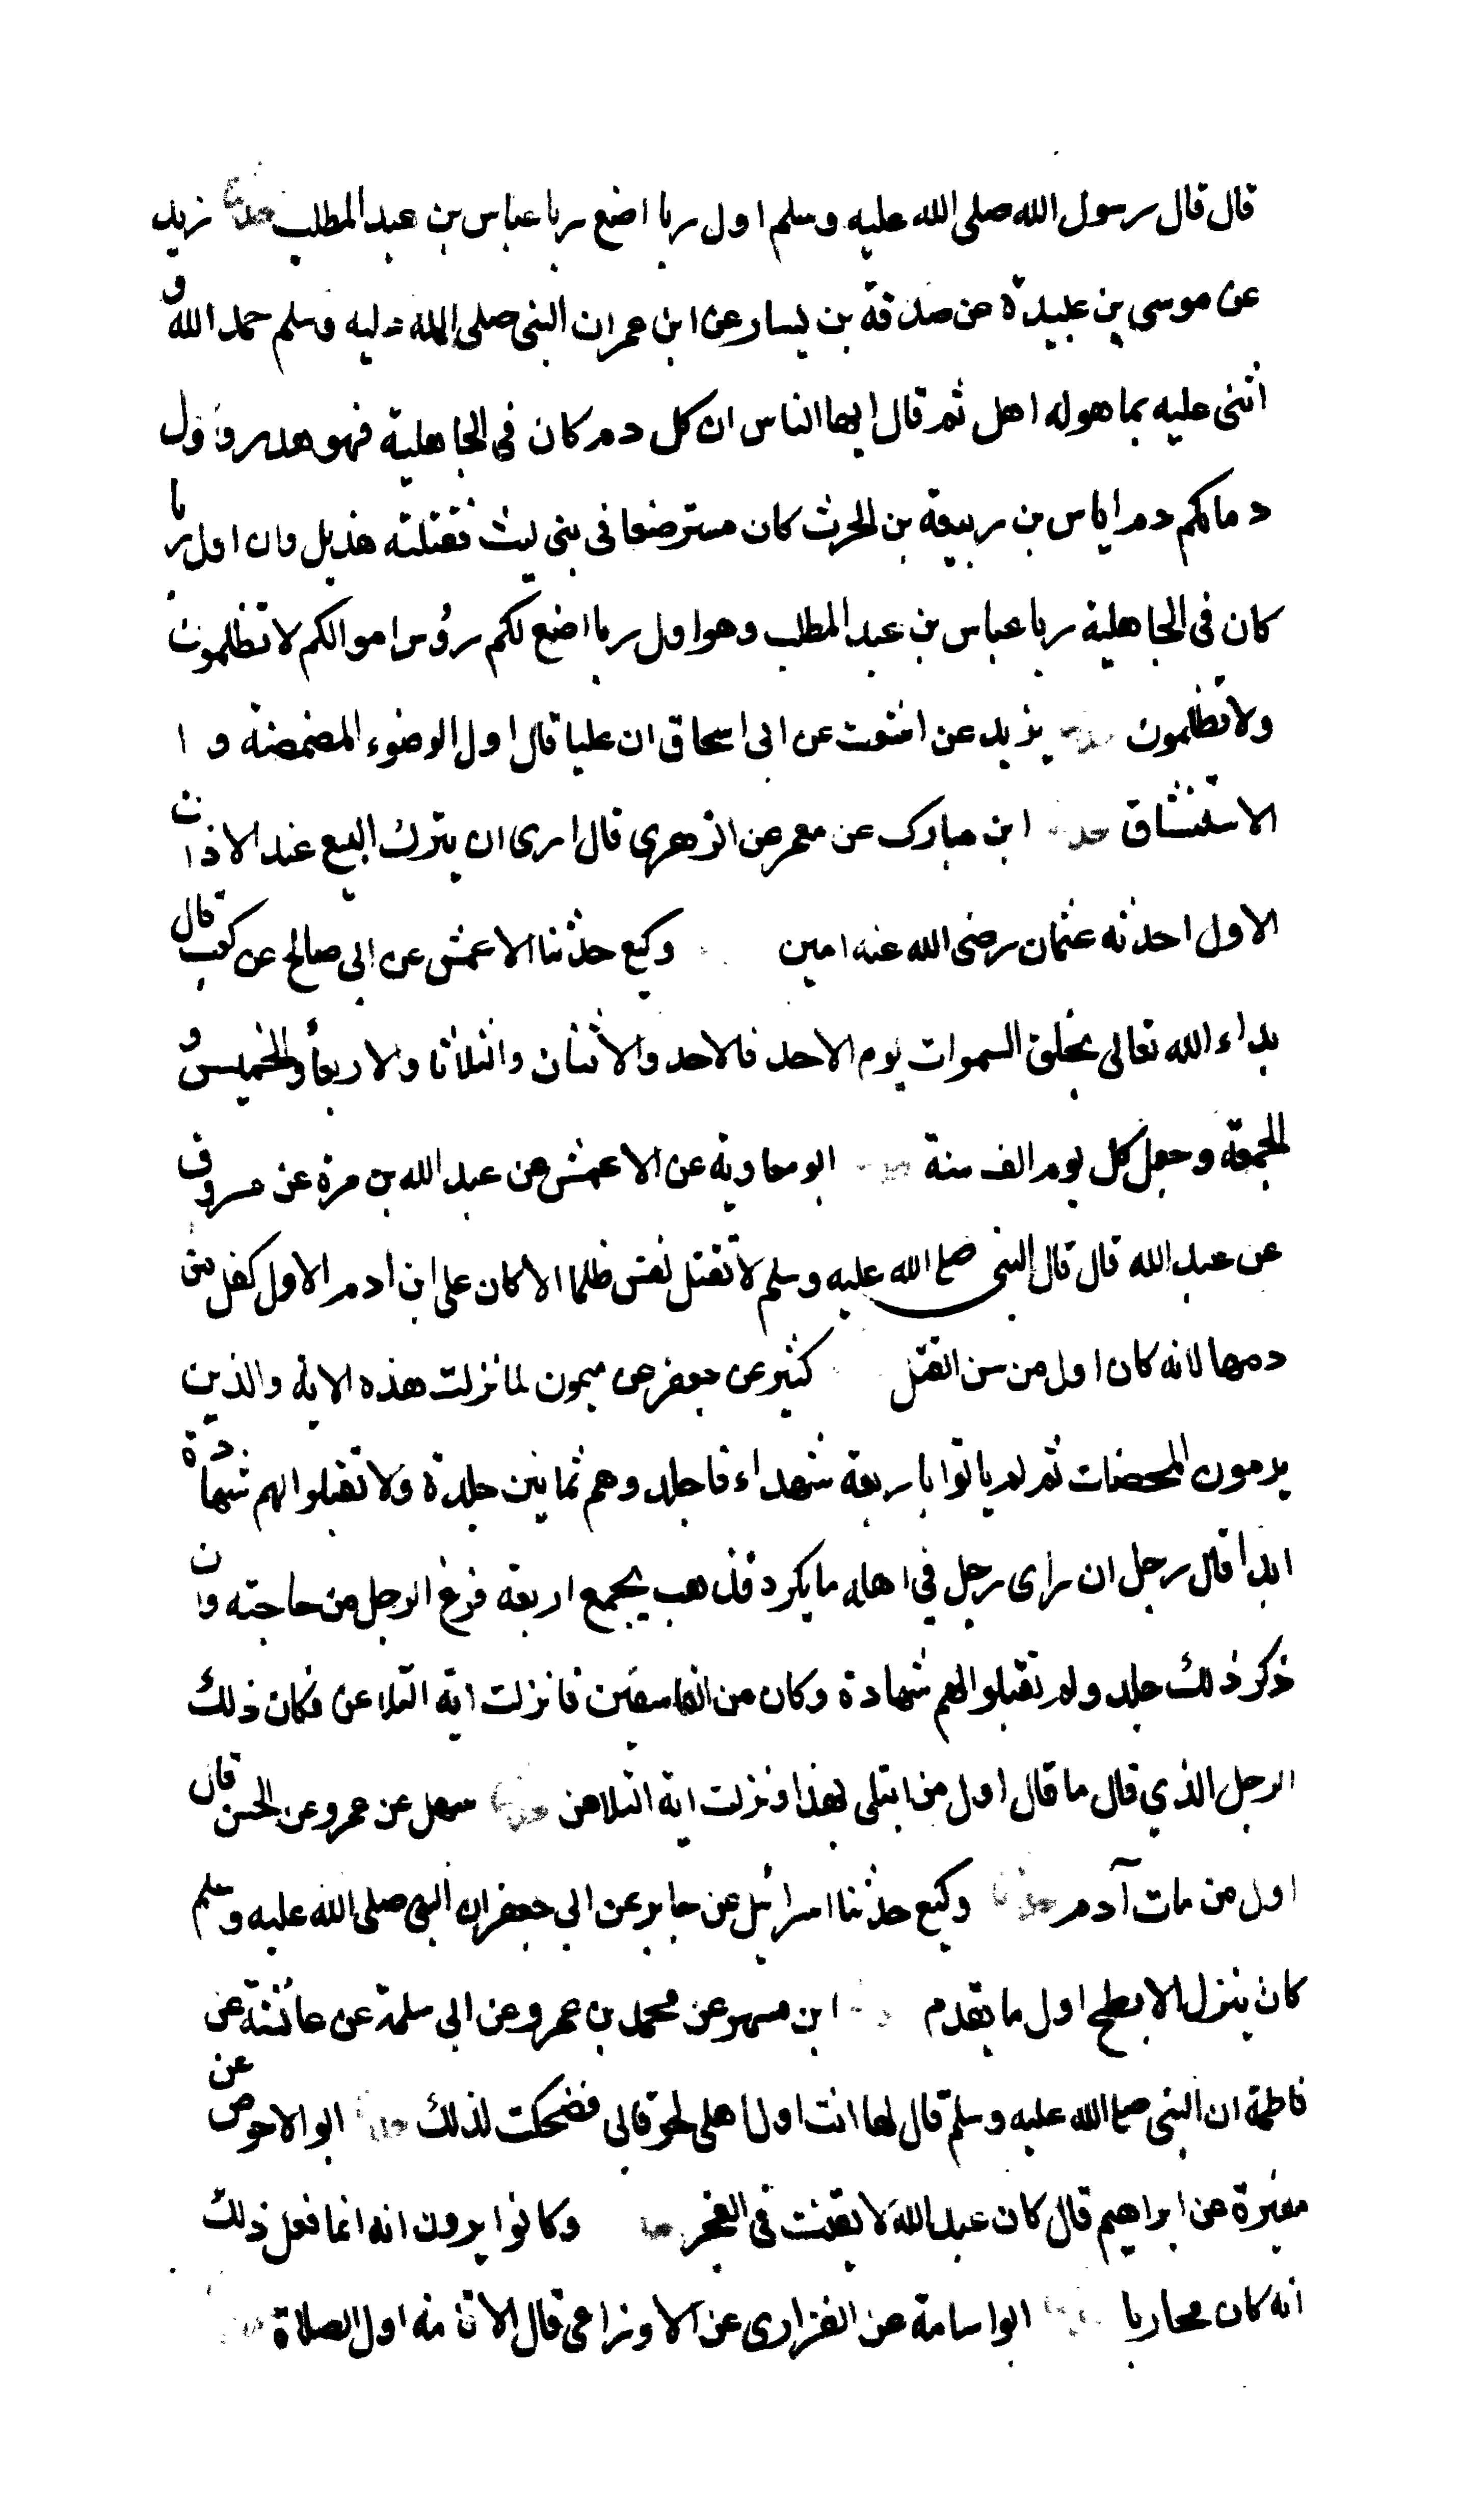 قال قال رسول الله صلى الله عليه وسلم اول ربا اضع ربا عباس بن عبد المطلب حدثنا زيد
عن موسى بن عبيدة عن صدقة بن يسار عن ابن عمر ان النبي صلى الله عليه وسلم حمد الله و
اثنى عليه بما هو له اهل ثم قال ايها الناس ان كل دم كان في الجاهلية فهو هدر واول
دمائكم دم اياس بن ربيعة بن الحرث كان مسترضعا في بني ليث فقتلته هذيل وان اول ربا
كان في الجاهلية ربا عباس بن عبد المطلب وهو اول ربا اضع لكم رؤس اموالكم لا تظلمون
ولا تظلمون حدثنا يزيد عن اشعث عن ابى اسحاق ان عليا قال اول الوضوء المضمضة و ا
الاستنشاق حدثنا ابن مبارك عن معمر عن الزهري قال ارى ان يترك البيع عند الاذان
الاول احدثه عثمان رضى الله عنه امين وكيع حدثنا الاعمش عن ابي صالح عن كعب قال
بداء الله تعالى بخلق السموات يوم الاحد فالاحد والاثنان والثلاثا والاربعا والخميس و
الجمعة وجعل كل يوم الف سنة ابو معاوية عن الاعمش عن عبد الله بن مرة عن مسروق
عن عبد الله قال قال النبي صلى الله عليه وسلم لا تقتل نفس ظلما الا كان على ابن ادم الاول كفل من
دمها لانه كان اول من سن القتل كثير عن جعفر عن ميمون لما نزلت هذه الاية والذين
يرمون المحصنات ثم لم ياتوا باربعة شهداء فاجلدوهم ثمانين جلدة ولا تقبلوا لهم شهادة
ابدا قال رجل ان راى رجل في اهله ما يكره فذهب يجمع اربعة فرغ الرجل من حاجته وان
ذكر ذلك جلد ولم تقبلوا لهم شهادة وكان من الفاسقين فانزلت اية التلاعن فكان ذلك
الرجل الذي قال ما قال اول من ابتلى بهذا ونزلت اية التلاعن حدثنا سهل عن عمرو عن الحسن قال
اول من مات آدم حدثنا وكيع حدثنا اسرائيل عن جابر عن ابي جعفر ان النبي صلى الله عليه وسلم
كان ينزل الابطح اول ما يقدم ابن مسهر عن محمد بن عمرو عن ابي سلمة عن عائشة عن
فاطمة ان النبي صلى الله عليه وسلم قال لها انت اول اهلي لحوقا بي فضحكت لذلك حدثنا ابو الاحوص عن
مغيرة عن ابراهيم قال كان عبد الله لا يقنت في الفجر وكانوا يرون انه انما فعل ذلك
انه كان محاربا ابو اسامة عن الفزاري عن الاوزاعي قال الاقامة اول الصلاة